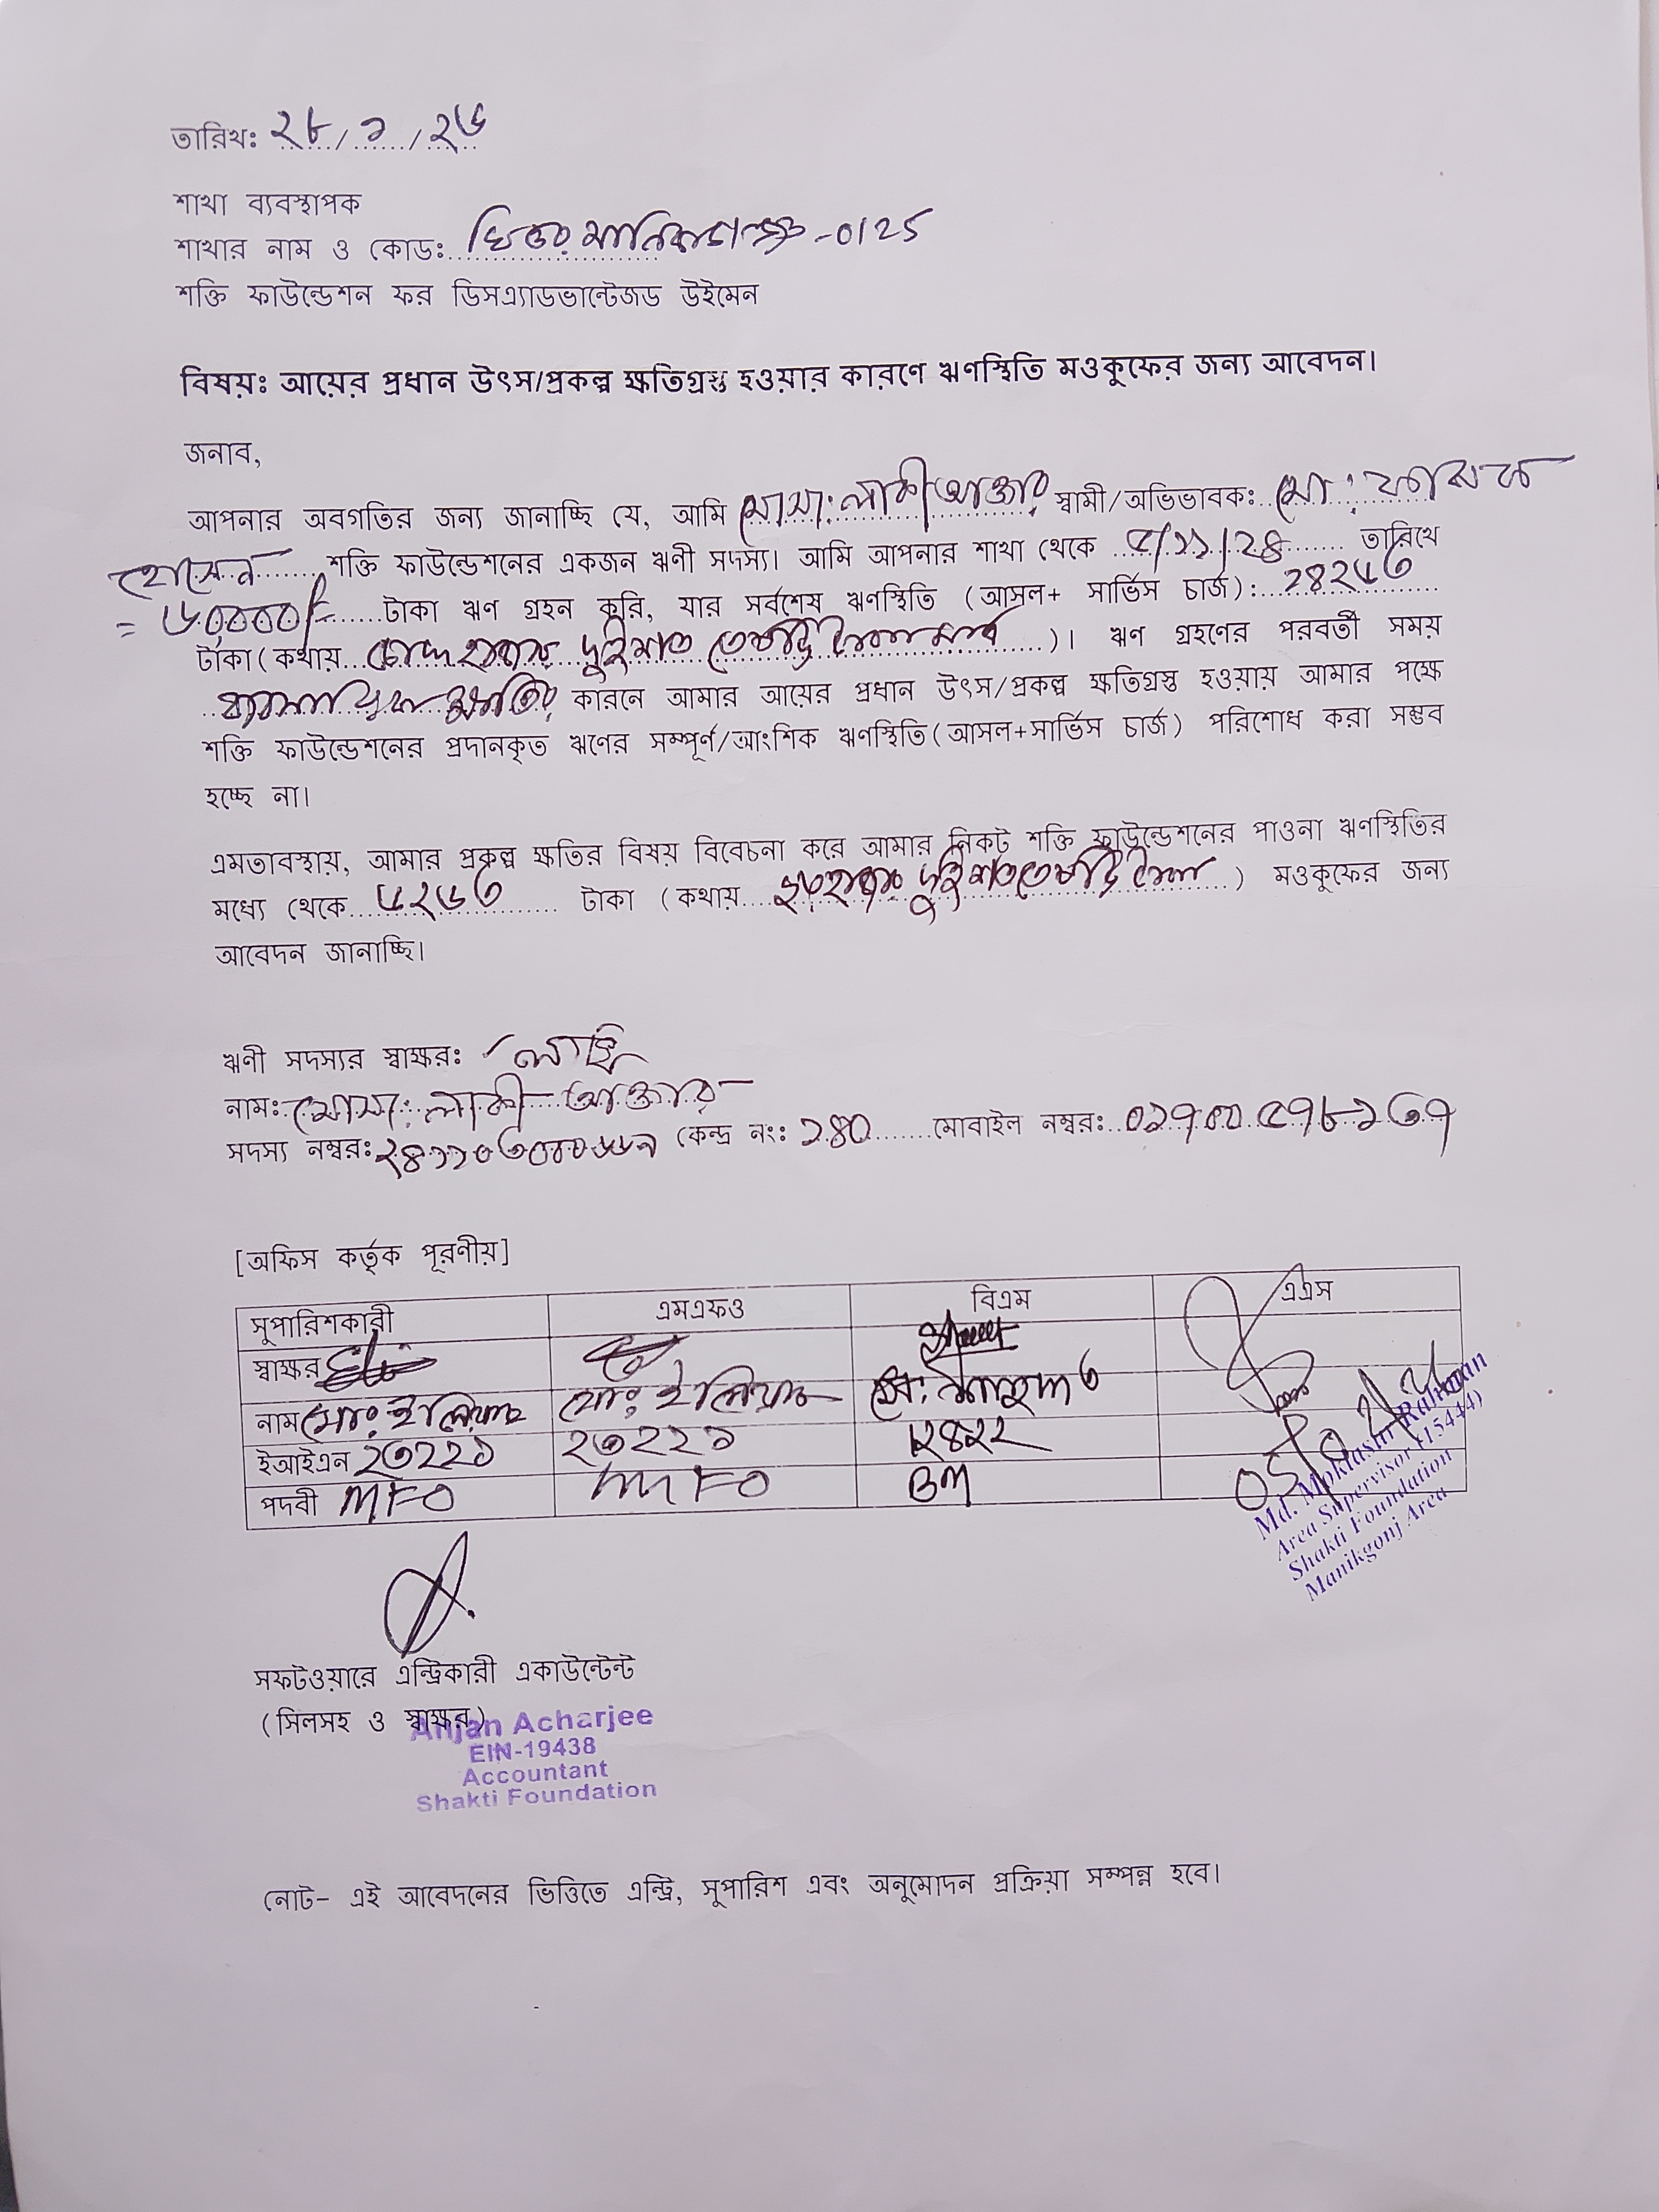 তারিখঃ ২৮/১/২৬
শাখা ব্যবস্থাপক
শাখার নাম ও কোডঃ ঘিওর মানিকগঞ্জ -0125
শক্তি ফাউন্ডেশন ফর ডিসএ্যাডভান্টেজড উইমেন
বিষয়ঃ আয়ের প্রধান উৎস/প্রকল্প ক্ষতিগ্রস্ত হওয়ার কারণে ঋণস্থিতি মওকুফের জন্য আবেদন।
জনাব,
আপনার অবগতির জন্য জানাচ্ছি যে, আমি মোসা: লাকী আক্তার স্বামী/অভিভাবকঃ মো:
হোসেন শক্তি ফাউন্ডেশনের একজন ঋণী সদস্য। আমি আপনার শাখা থেকে ৫/১১/২৪ তারিখে
= ৬০,০০০/- টাকা ঋণ গ্রহন করি, যার সর্বশেষ ঋণস্থিতি (আসল+ সার্ভিস চার্জ): ১৪২৬৩
টাকা(কথায় চৌদ্দ হাজার দুইশত তেষট্টি টাকা মাত্র)। ঋণ গ্রহণের পরবর্তী সময়
ক্ষতির কারনে আমার আয়ের প্রধান উৎস/প্রকল্প ক্ষতিগ্রস্ত হওয়ায় আমার পক্ষে
শক্তি ফাউন্ডেশনের প্রদানকৃত ঋণের সম্পূর্ণ/আংশিক ঋণস্থিতি(আসল+সার্ভিস চার্জ) পরিশোধ করা সম্ভব
হচ্ছে না।
এমতাবস্থায়, আমার প্রকল্প ক্ষতির বিষয় বিবেচনা করে আমার নিকট শক্তি ফাউন্ডেশনের পাওনা ঋণস্থিতির
মধ্যে থেকে ৬২৬৩ টাকা (কথায় ছয় হাজার দুইশত তেষট্টি টাকা) মওকুফের জন্য
আবেদন জানাচ্ছি।
ঋণী সদস্যর স্বাক্ষরঃ লাকি
নামঃ মোসা: লাকী আক্তার
সদস্য নম্বরঃ কেন্দ্র নং: ১৪০ মোবাইল নম্বরঃ ০১৭০০৫৭৮১৩৭
[অফিস কর্তৃক পূরণীয়]
সুপারিশকারী এমএফও বিএম এএস
স্বাক্ষর
নাম মোঃ ইলিয়াছ মোঃ ইলিয়াছ মো:
ইআইএন ২৩২২১ ২৩২২১
পদবী MFO MFO BM
Md. Moklasur Rahman
Area Supervisor (15444)
Shakti Foundation
Manikgonj Area
সফটওয়ারে এন্ট্রিকারী একাউন্টেন্ট
(সিলসহ ও স্বাক্ষর)
Anjan Acharjee
EIN-19438
Accountant
Shakti Foundation
নোট- এই আবেদনের ভিত্তিতে এন্ট্রি, সুপারিশ এবং অনুমোদন প্রক্রিয়া সম্পন্ন হবে।